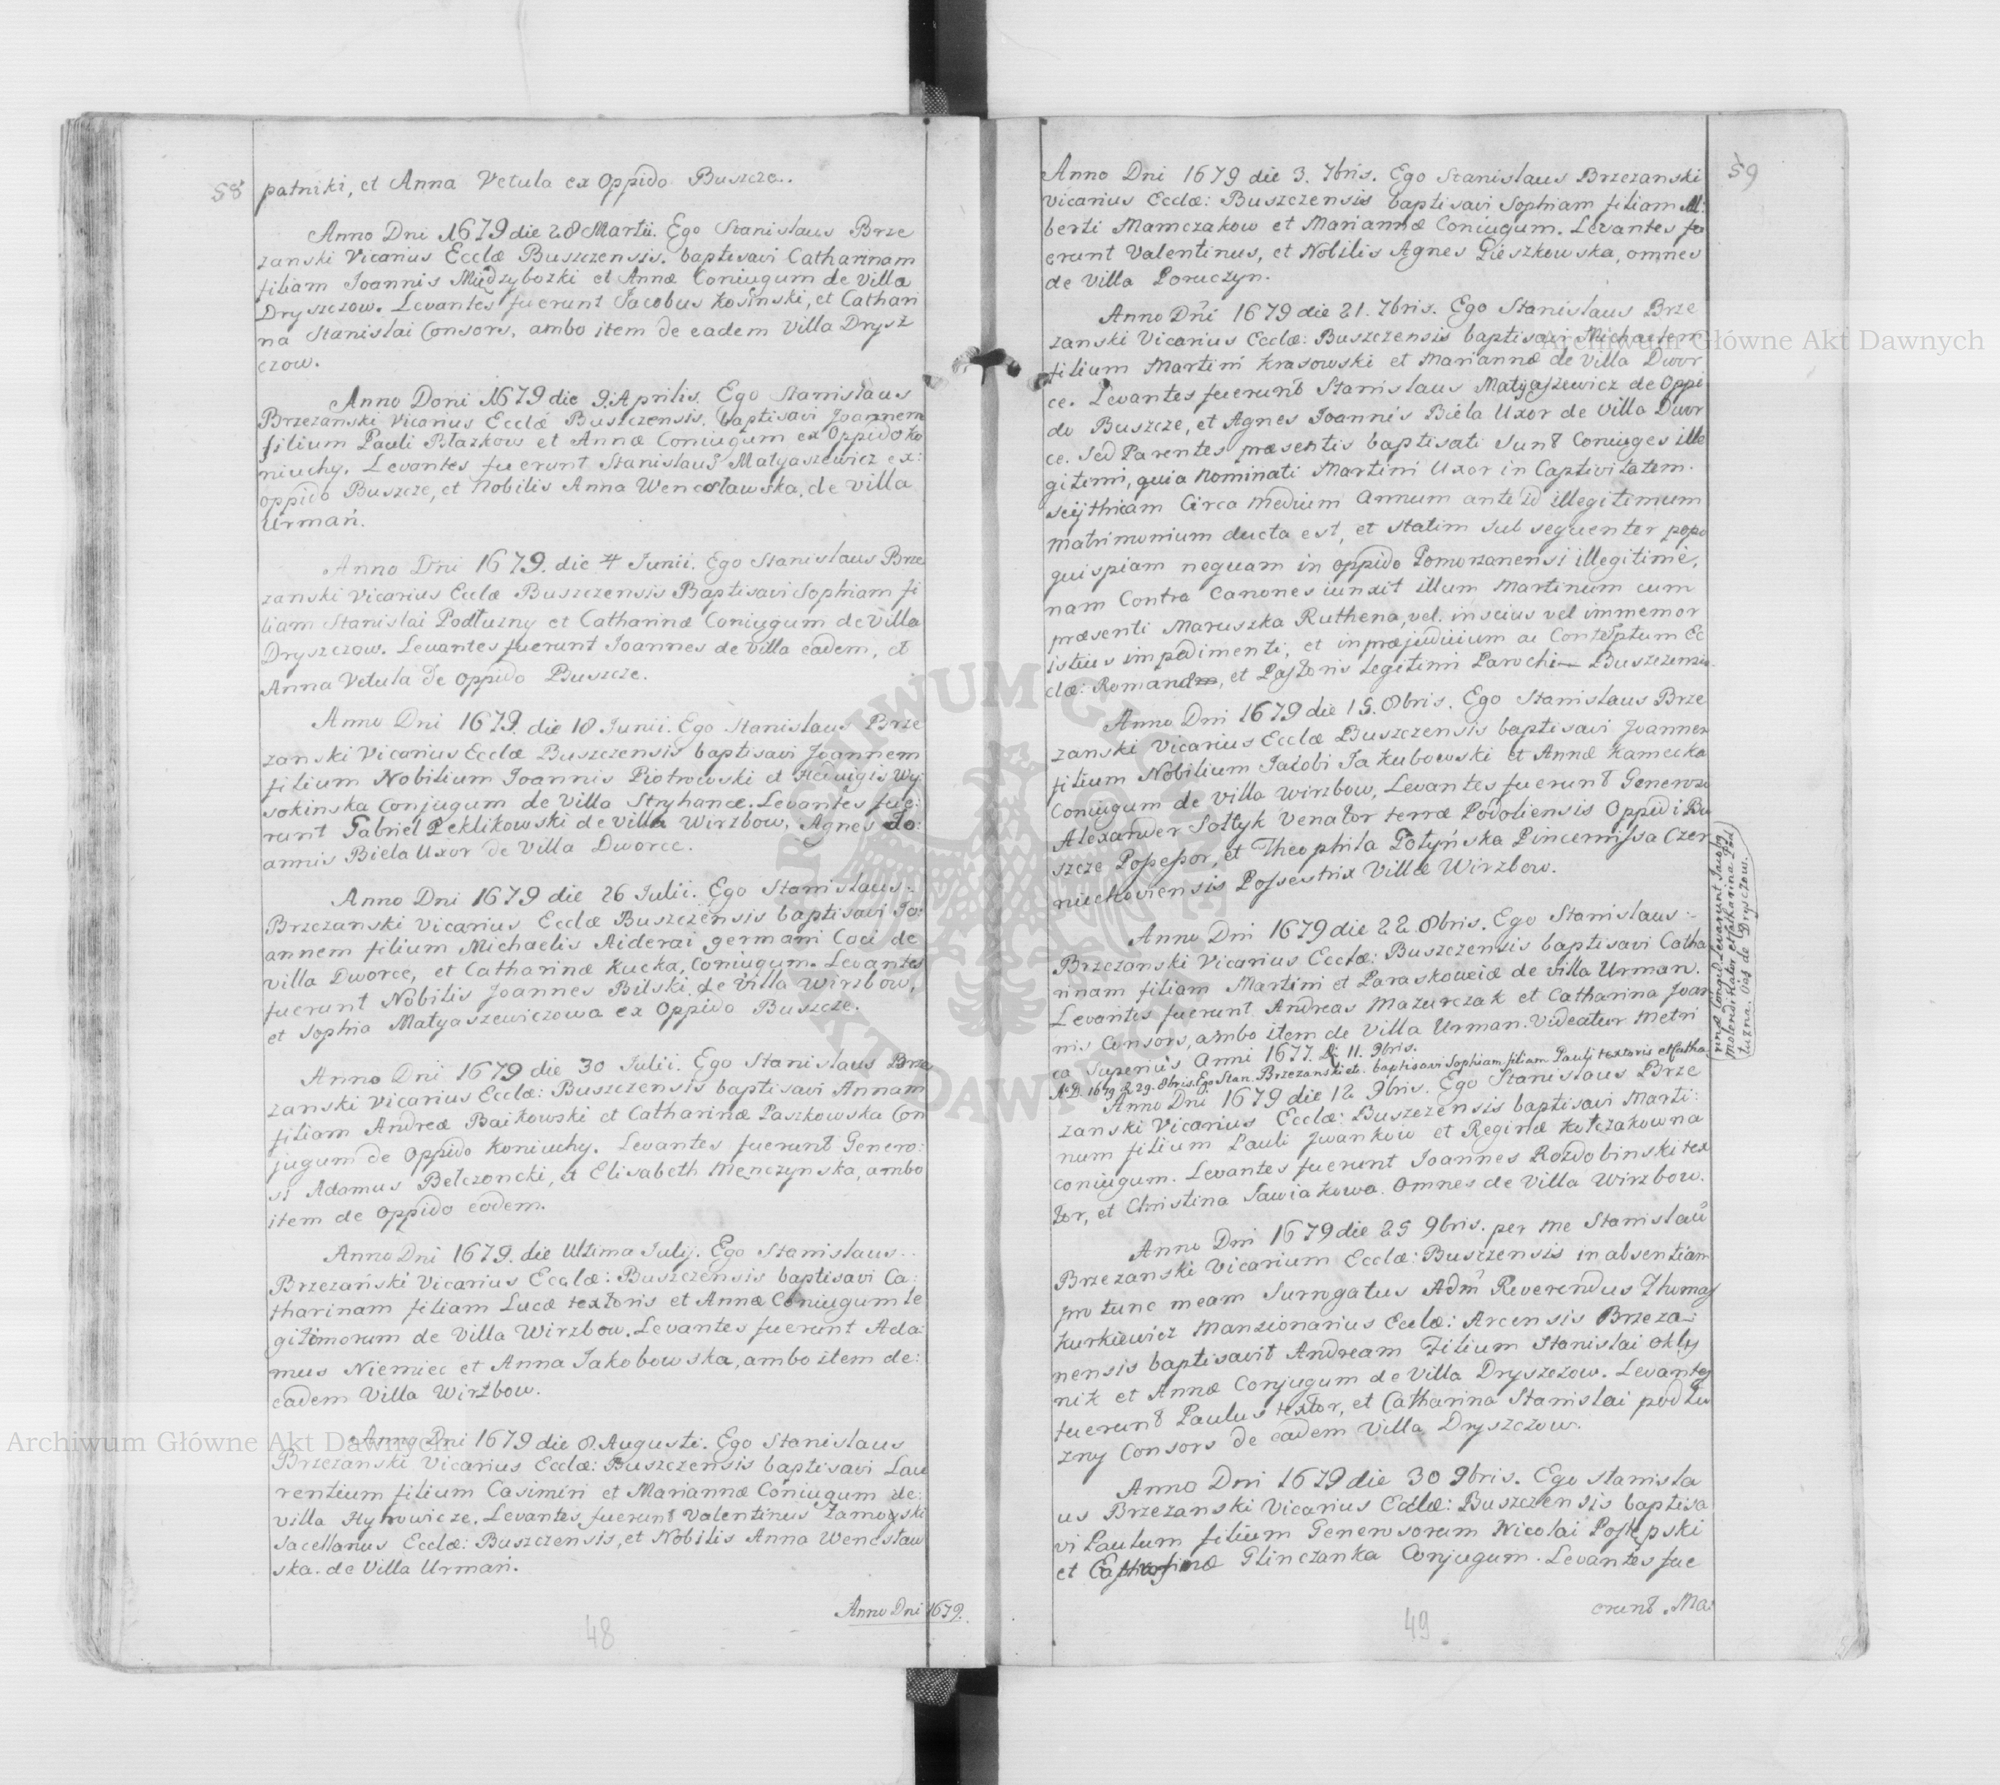 58
patniki, et Anna Vetula ex Oppido Buszcze..
Anno Dni 1679 die 28 Martii. Ego Stanislaus Brze
zanski Vicarius Ecclæ Buszczensis. baptisavi Catharinam
filiam Joannis Międzybozki et Annæ Coniugum de Villa
Dryszczow. Levantes fuerunt Jacobus Kosinski, et Cathari
na Stanislai Consors, ambo item de eadem Villa Drysz
czow.
Anno Domi 1679 die 9. Aprilis. Ego Stanislaus
Brzezanski Vicarius Ecclæ Buszczensis. baptisavi Joannem
filium Pauli Blazkow et Annæ Coniugum ex Oppido Ko
niuchy. Levantes fuerunt Stanislaus Matyaszewicz ex:
oppido Buszcze, et Nobilis Anna Wencslawska, de villa
Urmań.
Anno Dni 1679. die 4 Junii. Ego Stanislaus Brze
zanski Vicarius Ecclæ Buszczensis Baptisavi Sophiam fi
liam Stanislai Podłuzny et Catharinæ Coniugum de Villa
Dryszczow. Levantes fuerunt Joannes de Villa eadem, et
Anna Vetula de Oppido Buszcze.
Anno Dni 1679. die 18 Junii. Ego Stanislaus Brze
zanski Vicarius Ecclæ Buszczensis baptisavi Joannem
filium Nobilium Joannis Piotrowski et Hedvigis Wy
sokinska Conjugum de Villa Stryhance. Levantes fue:
runt Gabriel Peklikowski de Villa Wirzbow, Agnes Jo:
annis Biela Uxor de Villa Dworce.
Anno Dni 1679 die 26 Julii. Ego Stanislaus:
Brzezanski Vicarius Ecclæ Buszczensis baptisavi Jo:
annem filium Michaelis Aiderai germani Coci de
villa Dworce, et Catharinæ Kucka, Coniugum. Levantes
fuerunt Nobilis Joannes Bilski. de Villa Wirzbow,
et Sophia Matyaszewiczowa ex Oppido Buszcze.
Anno Dni 1679 die 30 Julii. Ego Stanislaus Brze
zanski Vicarius Ecclæ: Buszczensis baptisavi Annam
filiam Andreæ Baikowski et Catharinæ Paszkowska Con
jugum de Oppido Koniuchy. Levantes fuerunt Genero:
si Adamus Belczoncki, et Elisabeth Męnczynska, ambo
item de Oppido eodem.
Anno Dni 1679. die Ultima Julij. Ego Stanislaus..
Brzezański Vicarius Ecclæ: Buszczensis baptisavi Ca:
tharinam filiam Lucæ textoris et Annæ Coniugum le
gitimorum de Villa Wirzbow. Levantes fuerunt Ada:
mus Niemiec et Anna Jakobowska, ambo item de:
eadem Villa Wirzbow.
Anno Dni 1679 die 8. Augusti. Ego Stanislaus
Brzezanski Vicarius Ecclæ: Buszczensis baptisavi Lau
rentium filium Casimiri et Mariannæ Coniugum de:
villa Hynowicze. Levantes fuerunt Valentinus Zamoyski
Sacellanus Ecclæ: Buszczensis, et Nobilis Anna Wencslaw
ska. de Villa Urmań.
Anno Dni 1679.
48
59
Anno Dni 1679 die 3. 7bris. Ego Stanislaus Brzezanski
vicarius Ecclæ: Buszczensis baptisavi Sophiam filiam Al:
berti Mamczakow et Mariannæ Coniugum. Levantes fu
erunt Valentinus, et Nobilis Agnes Pieszkowska, omnes
de Villa Poruczyn.
Anno Dni 1679 die 21. 7bris. Ego Stanislaus Brze
zanski Vicarius Ecclæ: Buszczensis baptisavi Michaelem
filium Martini Krasowski et Mariannæ de Villa Dwor
ce. Levantes fuerunt Stanislaus Matyaszewicz de Oppi
do Buszcze, et Agnes Joannis Biela Uxor de Villa Dwor
ce. Sed Parentes præsentis baptisati Sunt Coniuges ille
gitimi, quia Nominati Martini Uxor in Captivitatem
Scijthicam Circa Medium Annum ante id illegitimum
Matrimonium ducta est, et statim Sub sequenter popo
quispiam nequam in oppido Pomorzanensi illegitimè,
nam Contra Canones iunxit illum Martinum cum
præsenti Maruszka Ruthena, vel. inscius vel immemor
istius impedimenti, et in præjudicium ac Contemptum Ec
clæ: Romanæ, et Pastoris legitimi Parochi Buszczensis.
Anno Dni 1679 die 15. 8bris. Ego Stanislaus Brze
zanski Vicarius Ecclæ Buszczensis baptisavi Joannem
filium Nobilium Jacobi Jakubowski et Annæ Kamecka
Coniugum de Villa Wirzbow, Levantes fuerunt Generosi
Alexander Sołtyk Venator terræ Podoliensis Oppidi Bu
szcze Possessor, et Theophila Potyńska Pincernissa Czer
niechoviensis Possestrix Villæ Wirzbow.
Anno Dni 1679 die 22. 8bris. Ego Stanislaus:
Brzezanski Vicarius Ecclæ: Buszczensis baptisavi Catha
rinam filiam Martini et Paraskoweiæ de villa Urman.
Levantes fuerunt Andreas Mazurczak et Catharina Joan
nis Consors, ambo item de Villa Urman. Videatur Metri
ca Superius Anni 1677. Di 11. 9bris.
A.D. 1679 d. 29. 8bris. Ego Stan. Brzezanski etc. baptisavi Sophiam filiam Pauli textoris et Catha
rinæ Congū. Levarunt Jacobg
Molendinator et Catharina Pod
luzna. Oēs de Dryszczow.
Anno Dni 1679 die 12 9bris. Ego Stanislaus Brze
zanski Vicarius Ecclæ: Buszczensis baptisavi Marti:
num filium Pauli Jwankow et Reginæ Kotczakowna
coniugum. Levantes fuerunt Joannes Rozdobinski tex
tor, et Christina Sawiakowa. Omnes de Villa Wirzbow.
Anno Dni 1679 die 25 9bris. per me Stanislaū
Brzezanski Vicarium Ecclæ: Buszczensis in absentiam
pro tunc meam Surrogatus Adm Reverendus Thomas
Kurkiewicz Mansionarius Ecclæ: Arcensis Brzeza:
nensis baptisavit Andream Filium Stanislai Okły
nik et Annæ Conjugum de Villa Dryszczow. Levantes
fuerunt Paulus textor, et Catharina Stanislai podłu
zny Consors de eadem Villa Dryszczow.
Anno Dni 1679 die 30 9bris. Ego Stanisla
us Brzezanski Vicarius Ecclæ: Buszczensis baptisa
vi Paulum filium Generosorum Nicolai Postępski
et Glinczanka Conjugum. Levantes fue
erunt. Ma:
49
Archiwum Główne Akt Dawnych
Archiwum Główne Akt Dawnych
ARCHIWUM GŁÓWNE AKT DAWNYCH